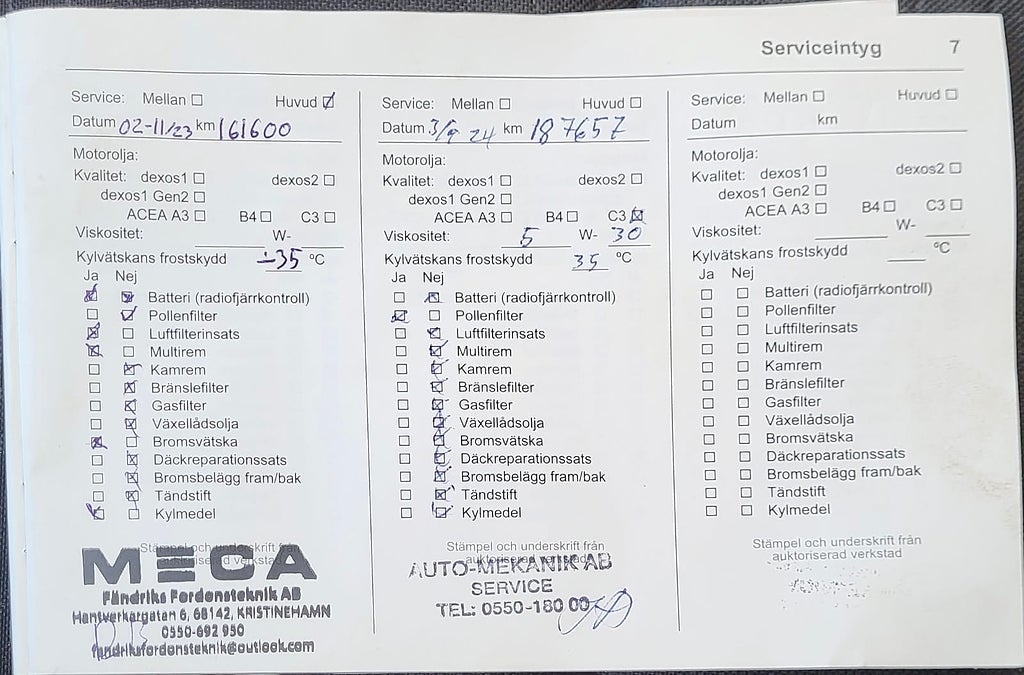 Serviceintyg 7
Service: Mellan ☐ Huvud ☑
Datum 02-11/23 km 161600
Motorolja:
Kvalitet: dexos1 ☐ dexos2 ☐
dexos1 Gen2 ☐
ACEA A3 ☐ B4 ☐ C3 ☐
Viskositet: W-
Kylvätskans frostskydd -35 °C
Ja Nej
☑ ☑ Batteri (radiofjärrkontroll)
☐ ☑ Pollenfilter
☑ ☐ Luftfilterinsats
☑ ☐ Multirem
☐ ☑ Kamrem
☐ ☑ Bränslefilter
☐ ☑ Gasfilter
☐ ☑ Växellådsolja
☑ ☐ Bromsvätska
☐ ☑ Däckreparationssats
☐ ☑ Bromsbelägg fram/bak
☐ ☑ Tändstift
☑ ☐ Kylmedel
Stämpel och underskrift från
auktoriserad verkstad
MECA
Fändriks Fordonsteknik AB
Hantverkargatan 6, 68142, KRISTINEHAMN
0550-692 950
fandriksfordonsteknik@outlook.com
Service: Mellan ☐ Huvud ☐
Datum 3/9 24 km 187657
Motorolja:
Kvalitet: dexos1 ☐ dexos2 ☐
dexos1 Gen2 ☐
ACEA A3 ☐ B4 ☐ C3 ☑
Viskositet: 5 W- 30
Kylvätskans frostskydd 35 °C
Ja Nej
☐ ☑ Batteri (radiofjärrkontroll)
☑ ☐ Pollenfilter
☐ ☑ Luftfilterinsats
☐ ☑ Multirem
☐ ☑ Kamrem
☐ ☑ Bränslefilter
☐ ☑ Gasfilter
☐ ☑ Växellådsolja
☐ ☑ Bromsvätska
☐ ☑ Däckreparationssats
☐ ☑ Bromsbelägg fram/bak
☐ ☑ Tändstift
☐ ☑ Kylmedel
Stämpel och underskrift från
auktoriserad verkstad
AUTO-MEKANIK AB
SERVICE
TEL: 0550-180 00
Service: Mellan ☐ Huvud ☐
Datum km
Motorolja:
Kvalitet: dexos1 ☐ dexos2 ☐
dexos1 Gen2 ☐
ACEA A3 ☐ B4 ☐ C3 ☐
Viskositet: W-
Kylvätskans frostskydd °C
Ja Nej
☐ ☐ Batteri (radiofjärrkontroll)
☐ ☐ Pollenfilter
☐ ☐ Luftfilterinsats
☐ ☐ Multirem
☐ ☐ Kamrem
☐ ☐ Bränslefilter
☐ ☐ Gasfilter
☐ ☐ Växellådsolja
☐ ☐ Bromsvätska
☐ ☐ Däckreparationssats
☐ ☐ Bromsbelägg fram/bak
☐ ☐ Tändstift
☐ ☐ Kylmedel
Stämpel och underskrift från
auktoriserad verkstad